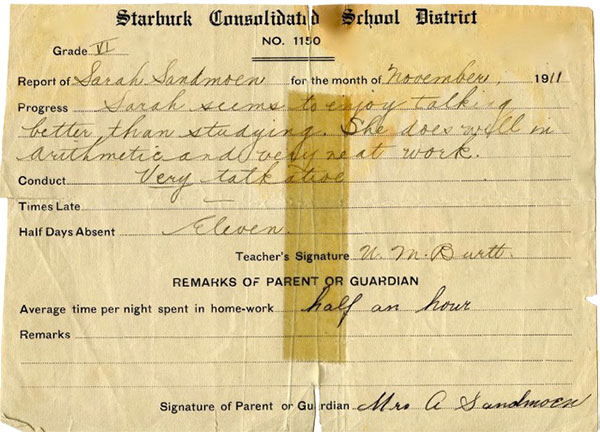 Starbuck Consolidated School District
NO. 1150
Grade VI
Report of Sarah Sandmoen for the month of November, 1911
Progress Sarah seems to enjoy talking
better than studying. She does well in
arithmetic and very neat work.
Conduct Very talkative
Times Late —
Half Days Absent Eleven.
Teacher's Signature N. M. Burtt.
REMARKS OF PARENT OR GUARDIAN
Average time per night spent in home-work half an hour
Remarks
Signature of Parent or Guardian Mrs A Sandmoen